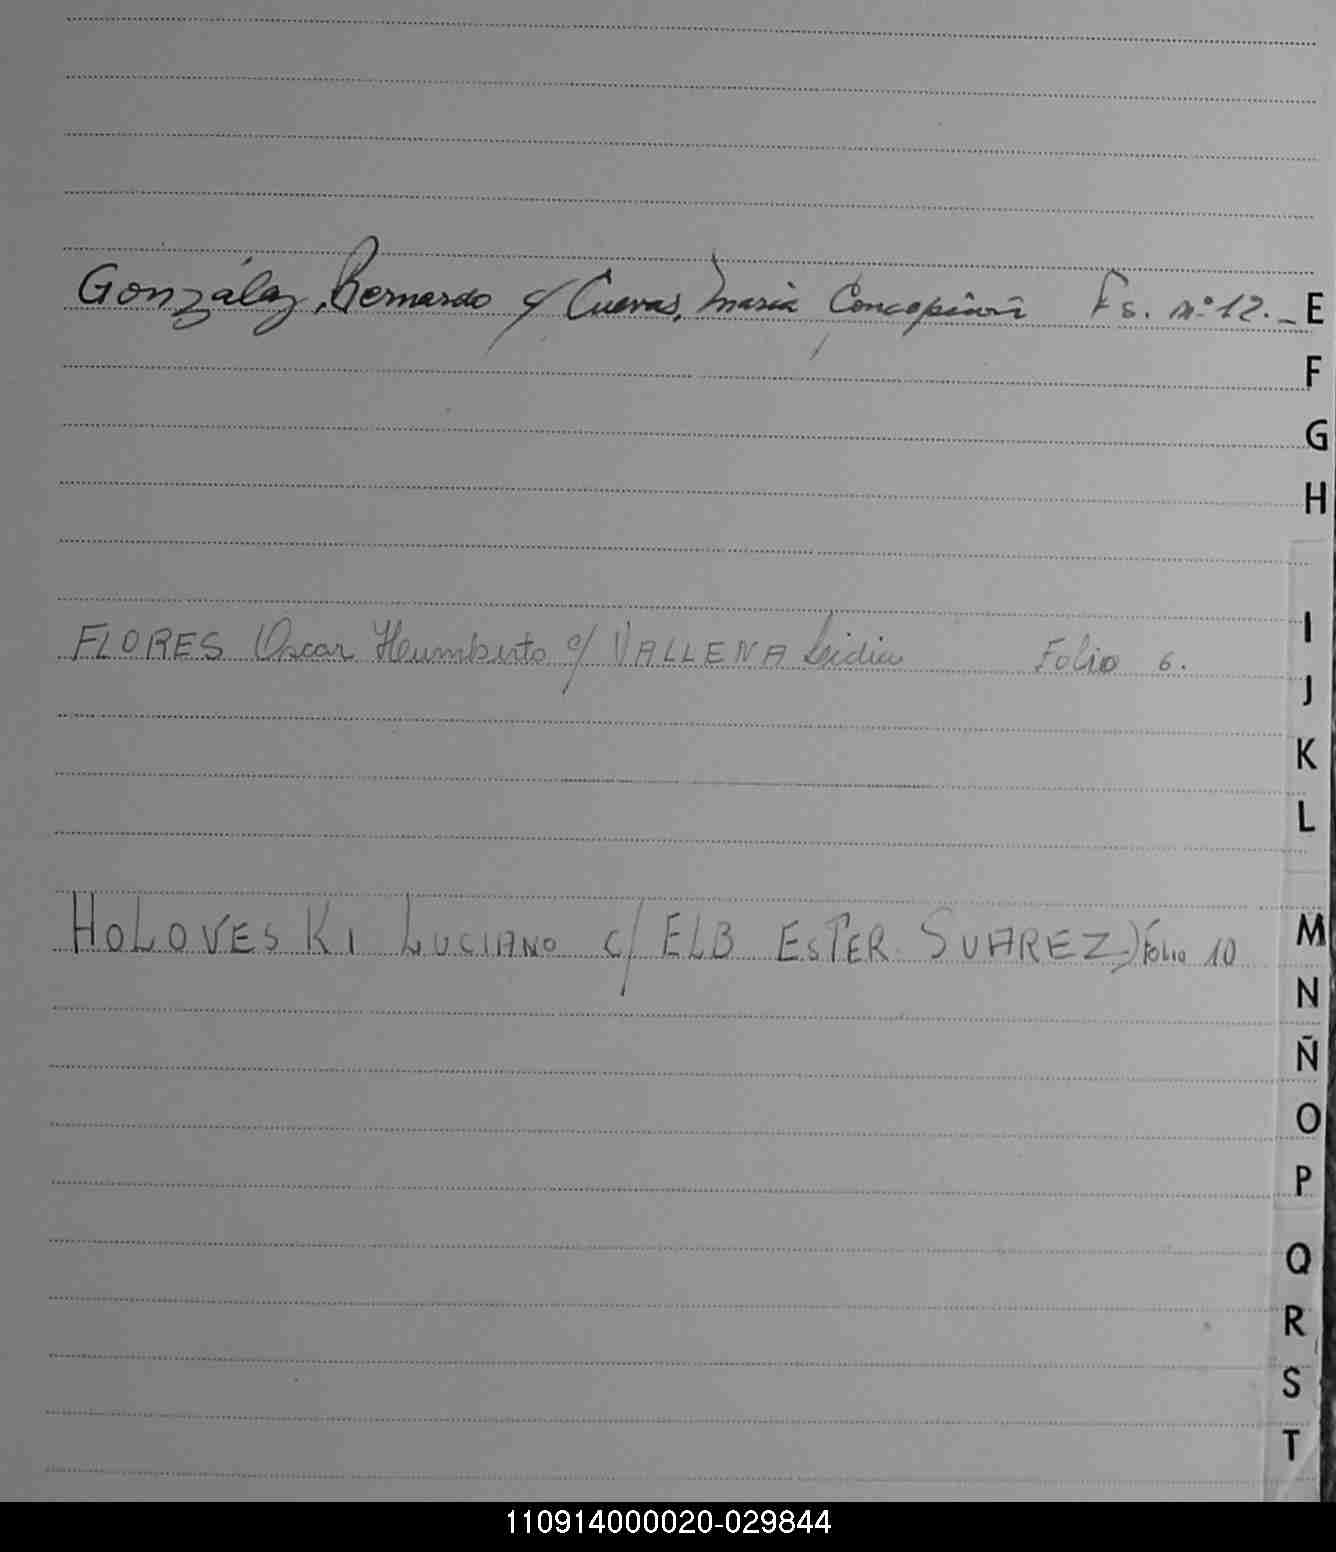 González, Bernardo c/ Cuevas, Maria Concepción Fs. nº 12.-
E
F
G
H
I
FLORES Oscar Humberto c/ VALLENA Lidia Folio 6.
J
K
L
HOLOVESKI LUCIANO c/ ELB ESTER SUAREZ) Folio 10
M
N
Ñ
O
P
Q
R
S
T
110914000020-029844